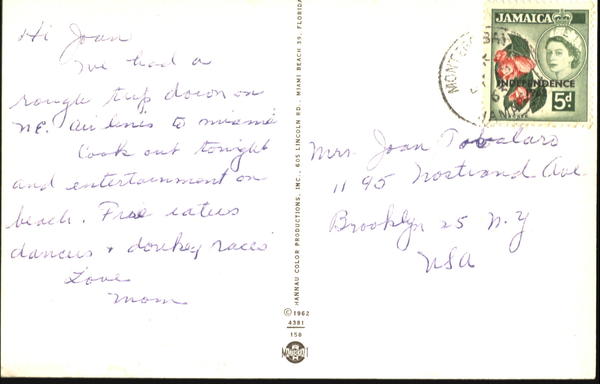 Hi Joan
I've had a
rough trip down on
N.E. Airlines to miami
Cook out tonight
and entertainment on
beach. Fire eaters
dancers + donkey races
Love
Mom
HANNAU COLOR PRODUCTIONS, INC., 605 LINCOLN RD., MIAMI BEACH 39, FLORIDA
© 1962
4381
158
JAMAICA
INDEPENDENCE
5d
MONTEGO BAY
JAMAICA
Mrs. Joan
1195 Nostrand Ave.
Brooklyn 25 N.Y
USA